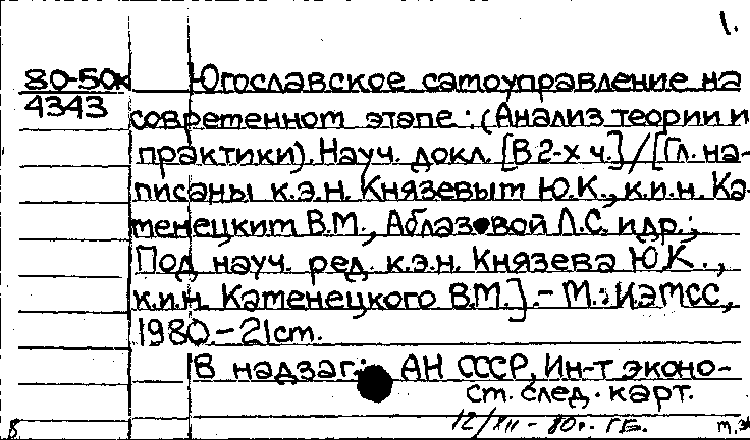 1.
80-50к
4343
Югославское самоуправление на
современном этапе: (Анализ теории и
практики). Науч. докл. [В 2-х ч.] / [Гл. на-
писаны к.э.н. Князевым Ю.К., к.и.н. Ка-
менецким В.М., Аблазовой Л.С. и др.;
Под науч. ред. к.э.н. Князева Ю.К.,
к.и.н. Каменецкого В.М.]. - М.: ИЭМСС,
1980. - 21 см.
В надзаг.: АН СССР, Ин-т эконо-
См. след. карт.
12/XII - 80г. Г.Б.